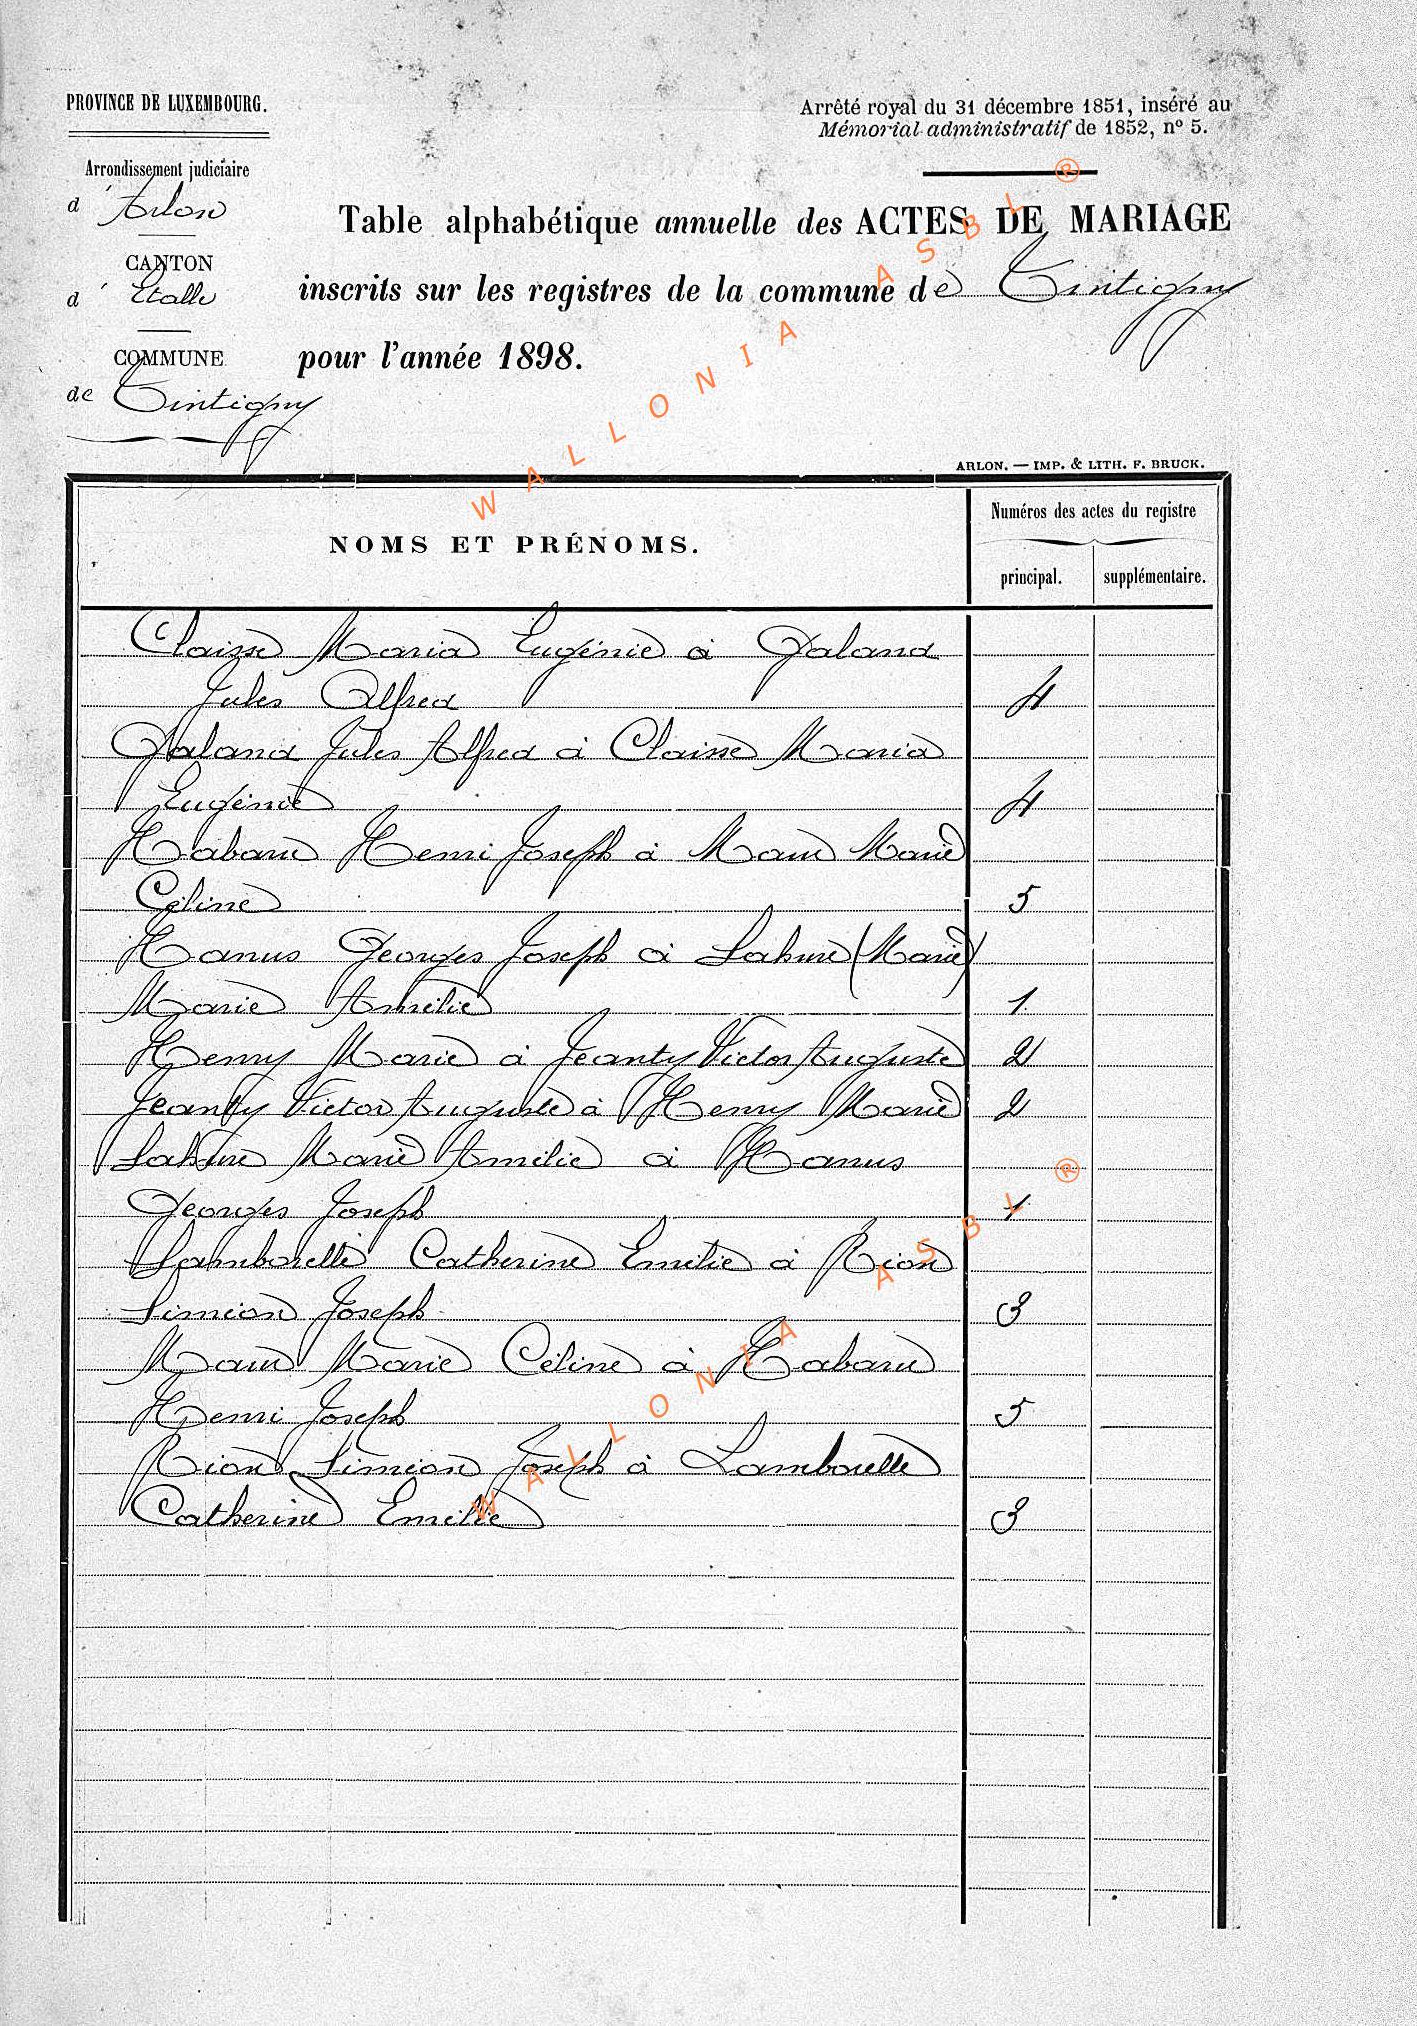 PROVINCE DE LUXEMBOURG.
Arrêté royal du 31 décembre 1851, inséré au
Mémorial administratif de 1852, n° 5.
Arrondissement judiciaire
d'Arlon
CANTON
d'Etalle
COMMUNE
de Tintigny
Table alphabétique annuelle des ACTES DE MARIAGE
inscrits sur les registres de la commune de Tintigny
pour l'année 1898.
ARLON. — IMP. & LITH. F. BRUCK.
NOMS ET PRÉNOMS.
Numéros des actes du registre
principal. supplémentaire.
Claisse Maria Eugénie à Galand
Jules Alfred 4
Galand Jules Alfred à Claisse Maria
Eugénie 4
Habaru Henri Joseph à Marie
Céline 5
Hanus Georges Joseph à Lahure (Marie)
Marie Amélie 1.
Henry Marie à Jeanty Victor Auguste 2
Jeanty Victor Auguste à Henry Marie 2
Lahure Marie Amélie à Hanus
Georges Joseph 1
Lamborelle Catherine Emilie à Rion
Siméon Joseph 3
Marie Céline à Habaru
Henri Joseph 5
Rion Siméon Joseph à Lamborelle
Catherine Emilie 3
WALLONIA ASBL ®
WALLONIA ASBL ®